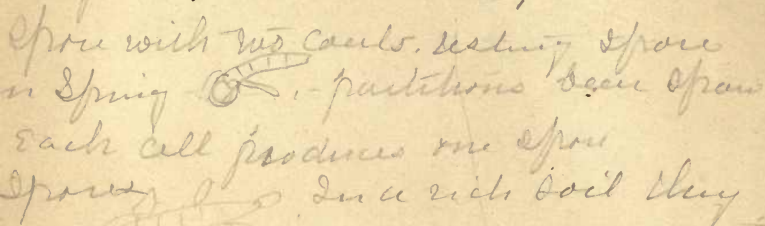 spore with two coats. resting spore
n Spring - partitions seen spore
Each cell produces one spore
spores In a rich soil they